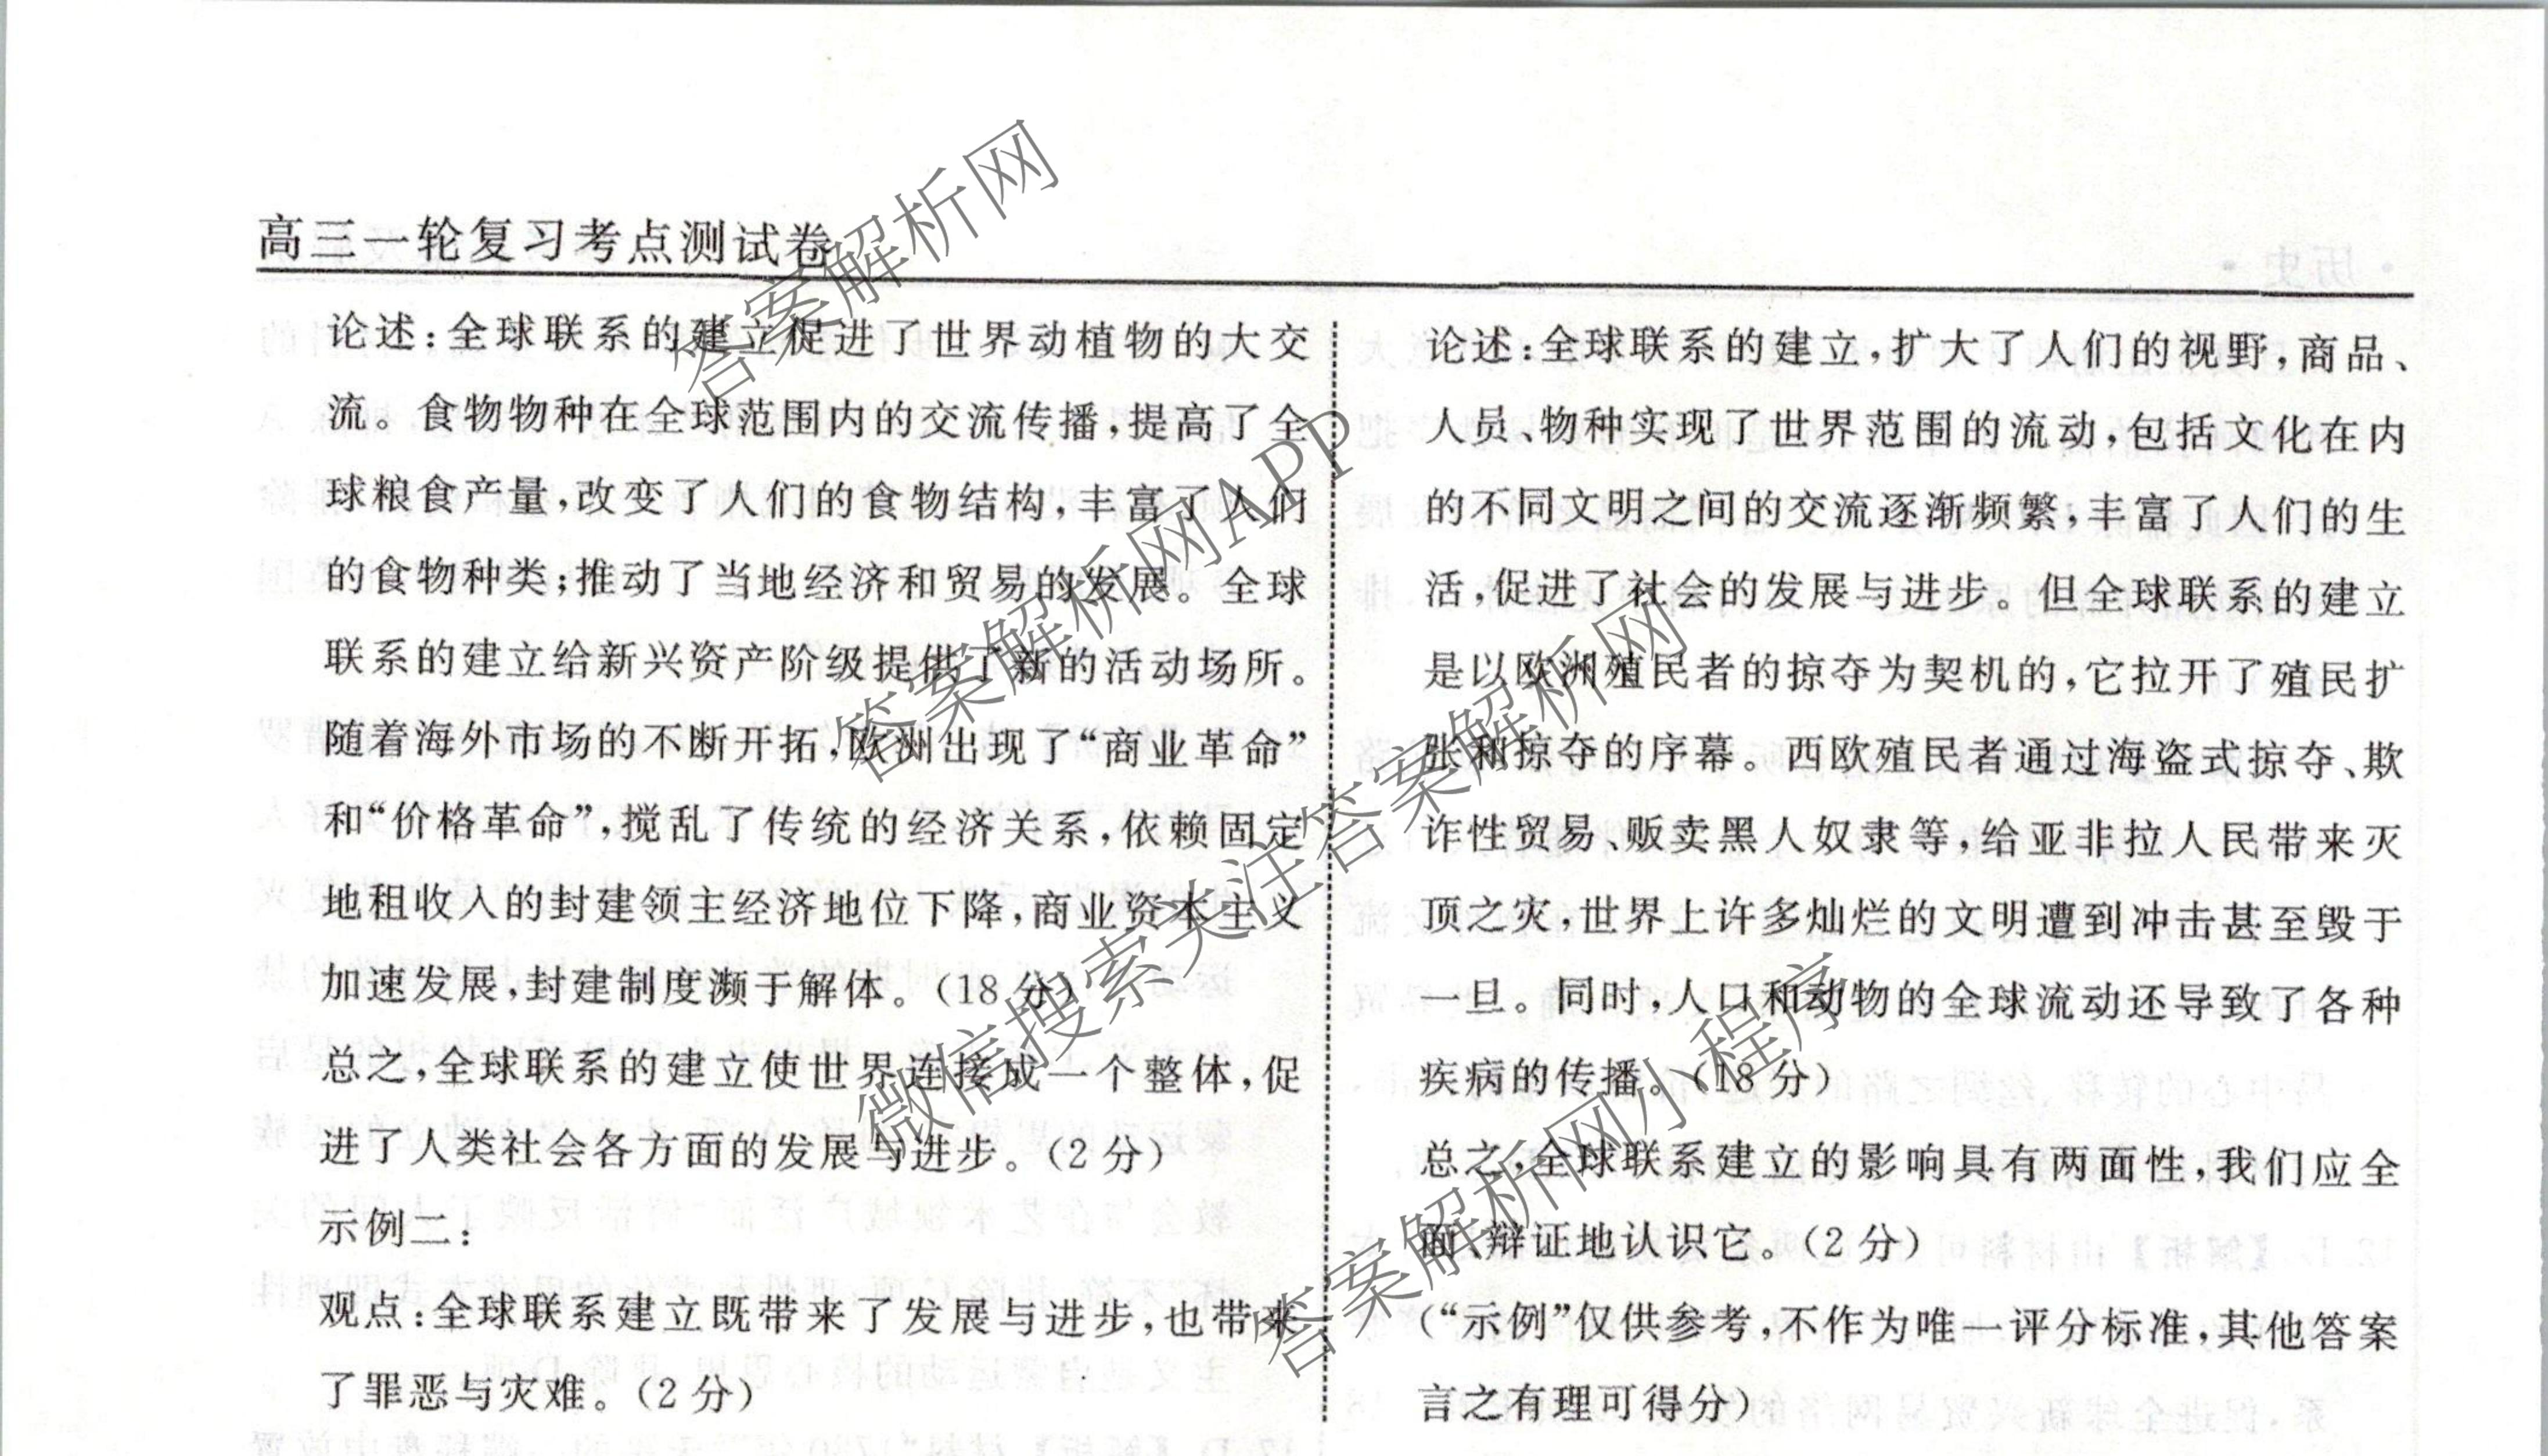 高三一轮复习考点测试卷
论述:全球联系的建立促进了世界动植物的大交
流。食物物种在全球范围内的交流传播,提高了全
球粮食产量,改变了人们的食物结构,丰富了人们
的食物种类;推动了当地经济和贸易的发展。全球
联系的建立给新兴资产阶级提供了新的活动场所。
随着海外市场的不断开拓,欧洲出现了“商业革命”
和“价格革命”,搅乱了传统的经济关系,依赖固定
地租收入的封建领主经济地位下降,商业资本主义
加速发展,封建制度濒于解体。(18分)
总之,全球联系的建立使世界连接成一个整体,促
进了人类社会各方面的发展与进步。(2分)
示例二:
观点:全球联系建立既带来了发展与进步,也带来
了罪恶与灾难。(2分)
论述:全球联系的建立,扩大了人们的视野,商品、
人员、物种实现了世界范围的流动,包括文化在内
的不同文明之间的交流逐渐频繁,丰富了人们的生
活,促进了社会的发展与进步。但全球联系的建立
是以欧洲殖民者的掠夺为契机的,它拉开了殖民扩
张和掠夺的序幕。西欧殖民者通过海盗式掠夺、欺
诈性贸易、贩卖黑人奴隶等,给亚非拉人民带来灭
顶之灾,世界上许多灿烂的文明遭到冲击甚至毁于
一旦。同时,人口和动物的全球流动还导致了各种
疾病的传播。(18分)
总之,全球联系建立的影响具有两面性,我们应全
面、辩证地认识它。(2分)
(“示例”仅供参考,不作为唯一评分标准,其他答案
言之有理可得分)
答案解析网
答案解析网APP
微信搜索关注答案解析网
答案解析网小程序